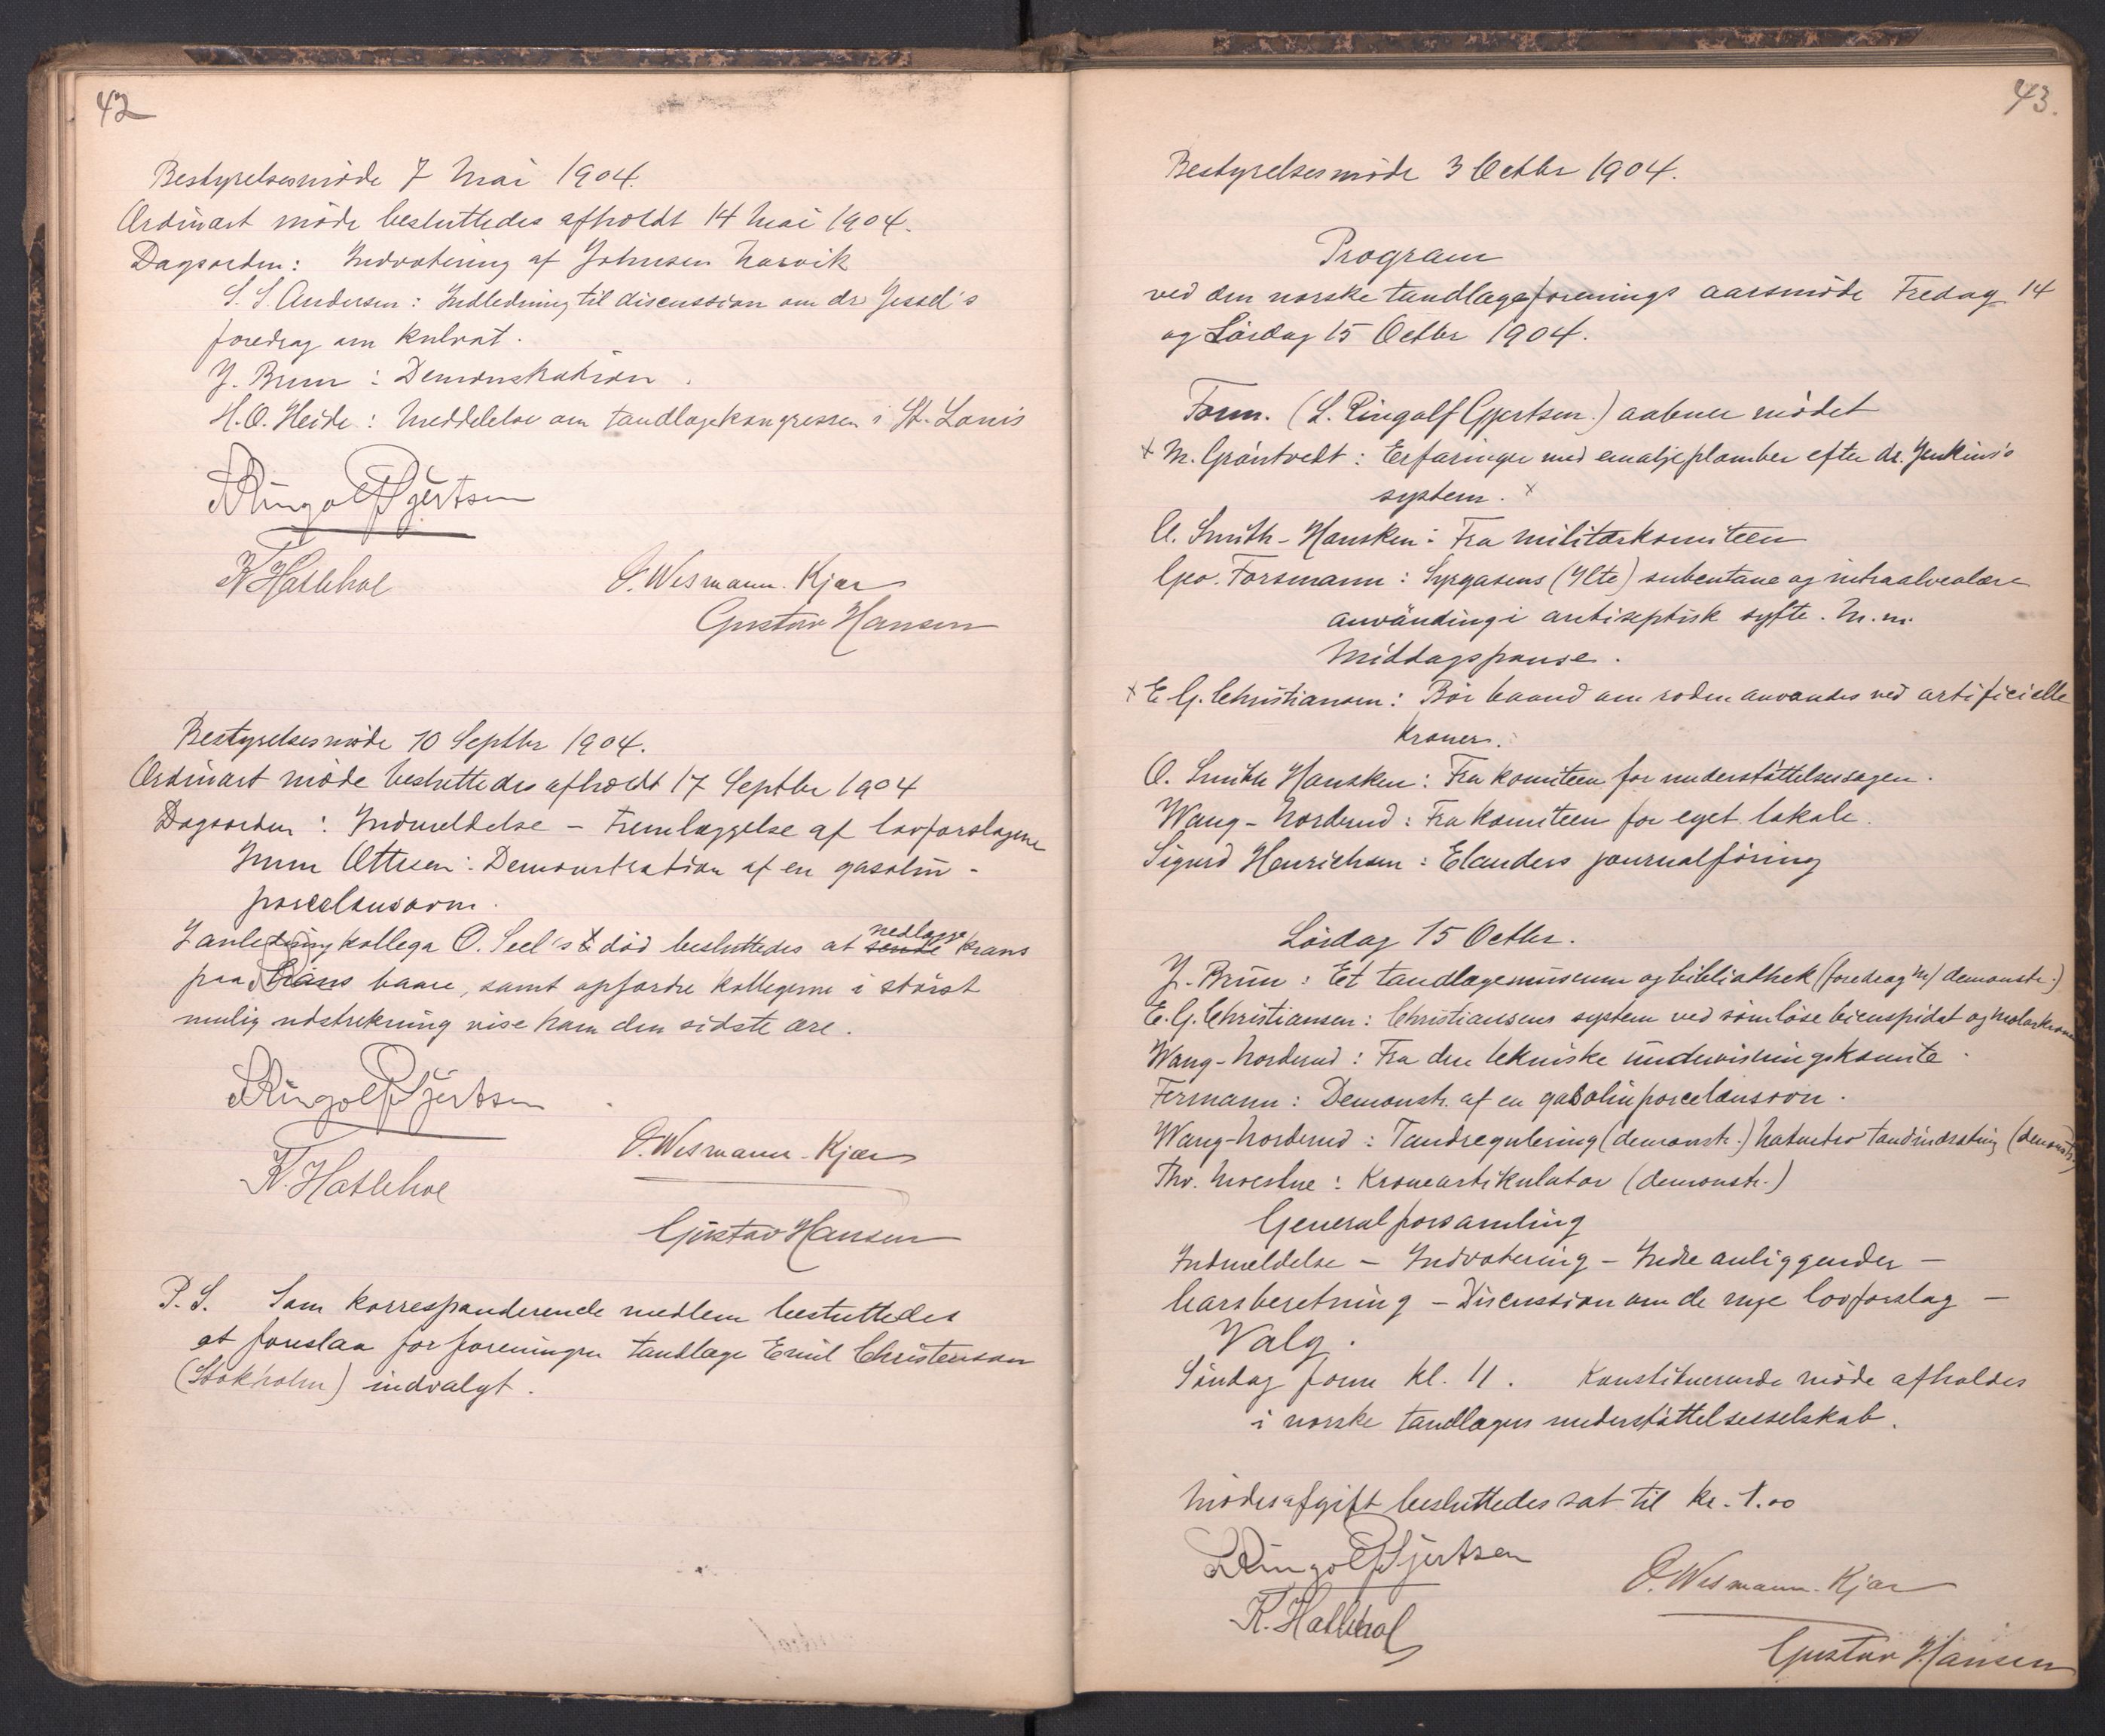 42
Bestyrelsesmöde 7 Mai 1904.
Ordinært möde besluttedes afholdt 14 Mai 1904.
Dagsorden: Indvotering af Johnsen Narvik
S. S. Andersen: Indledning til discussion om dr Jessel's
foredrag om kulrat.
J. Brun: Demonstration.
H. O. Heide: Meddelelse om tandlægekongressen i St. Louis
S Ringolf Gjertsen
K Hatlehol
O. Wesmann-Kjær
Gustav Hansen
Bestyrelsesmöde 10 Septbr 1904.
Ordinært möde besluttedes afholdt 17 Septbr 1904
Dagsorden: Indmeldelse – Fremlæggelse af lovforslagene
Ottesen: Demonstration af en gasolin-
porcelænsovn.
I anledning kollega O. Seel's död besluttedes at sende nedlægge krans
paa hans baare, samt opfordre kollegerne i störst
mulig udstrekning vise ham den sidste ære.
S Ringolf Gjertsen
K. Hatlehol
O. Wesmann-Kjær
Gustav Hansen
P. S. Som korresponderende medlem besluttedes
at foreslaa for foreningen tandlæge Emil Christenson
(Stokholm) indvalgt.
43.
Bestyrelsesmöde 3 Octbr 1904.
Program
ved den norske tandlægeforenings aarsmöde Fredag 14
og Lördag 15 Octbr 1904.
Form. (S. Ringolf Gjertsen.) aabner mödet
x M. Gröntvedt: Erfaringer med emaljeplomber efter dr. Jenkins's
system. x
O. Smith-Hansken: Fra militærkomiteen
Geo. Forsmann: Syrgasens (Ilte) subcutane og intraalveolære
användning i antiseptisk syfte. M. m.
Middagspause.
x E G. Christiansen: Bör baand om roden anvendes ved artificielle
kroner.
O. Smith Hansken: Fra komiteen for understöttelsessagen.
Wang-Norderud: Fra komiteen for eget lokale.
Sigurd Henrichsen: Elanders journalföring
Lördag 15 Octbr.
J. Brun: Et tandlægemuseum og bibliothek (foredrag m/ demonstr.)
E. G. Christiansen: Christiansens system ved sömlöse bicuspidat og molarkroner
Wang-Norderud: Fra den tekniske undervisningskomite.
Fermann: Demonstr. af en gasolinporcelænsovn.
Wang-Norderud: Tandregulering (demonstr.) tandindsætning (demonstr.)
Thv. Moestue: Kroneartikulator (demonstr.)
Generalforsamling
Indmeldelse – Indvotering – Indre anliggender –
Aarsberetning – Discussion om de nye lovforslag –
Valg.
Söndag form kl. 11. Konstituerende möde afholdes
i norske tandlægers understöttelsesselskab.
Mödesafgift besluttedes sat til kr. 1.00
S Ringolf Gjertsen
K. Hatlehol
O. Wesmann-Kjær
Gustav Hansen